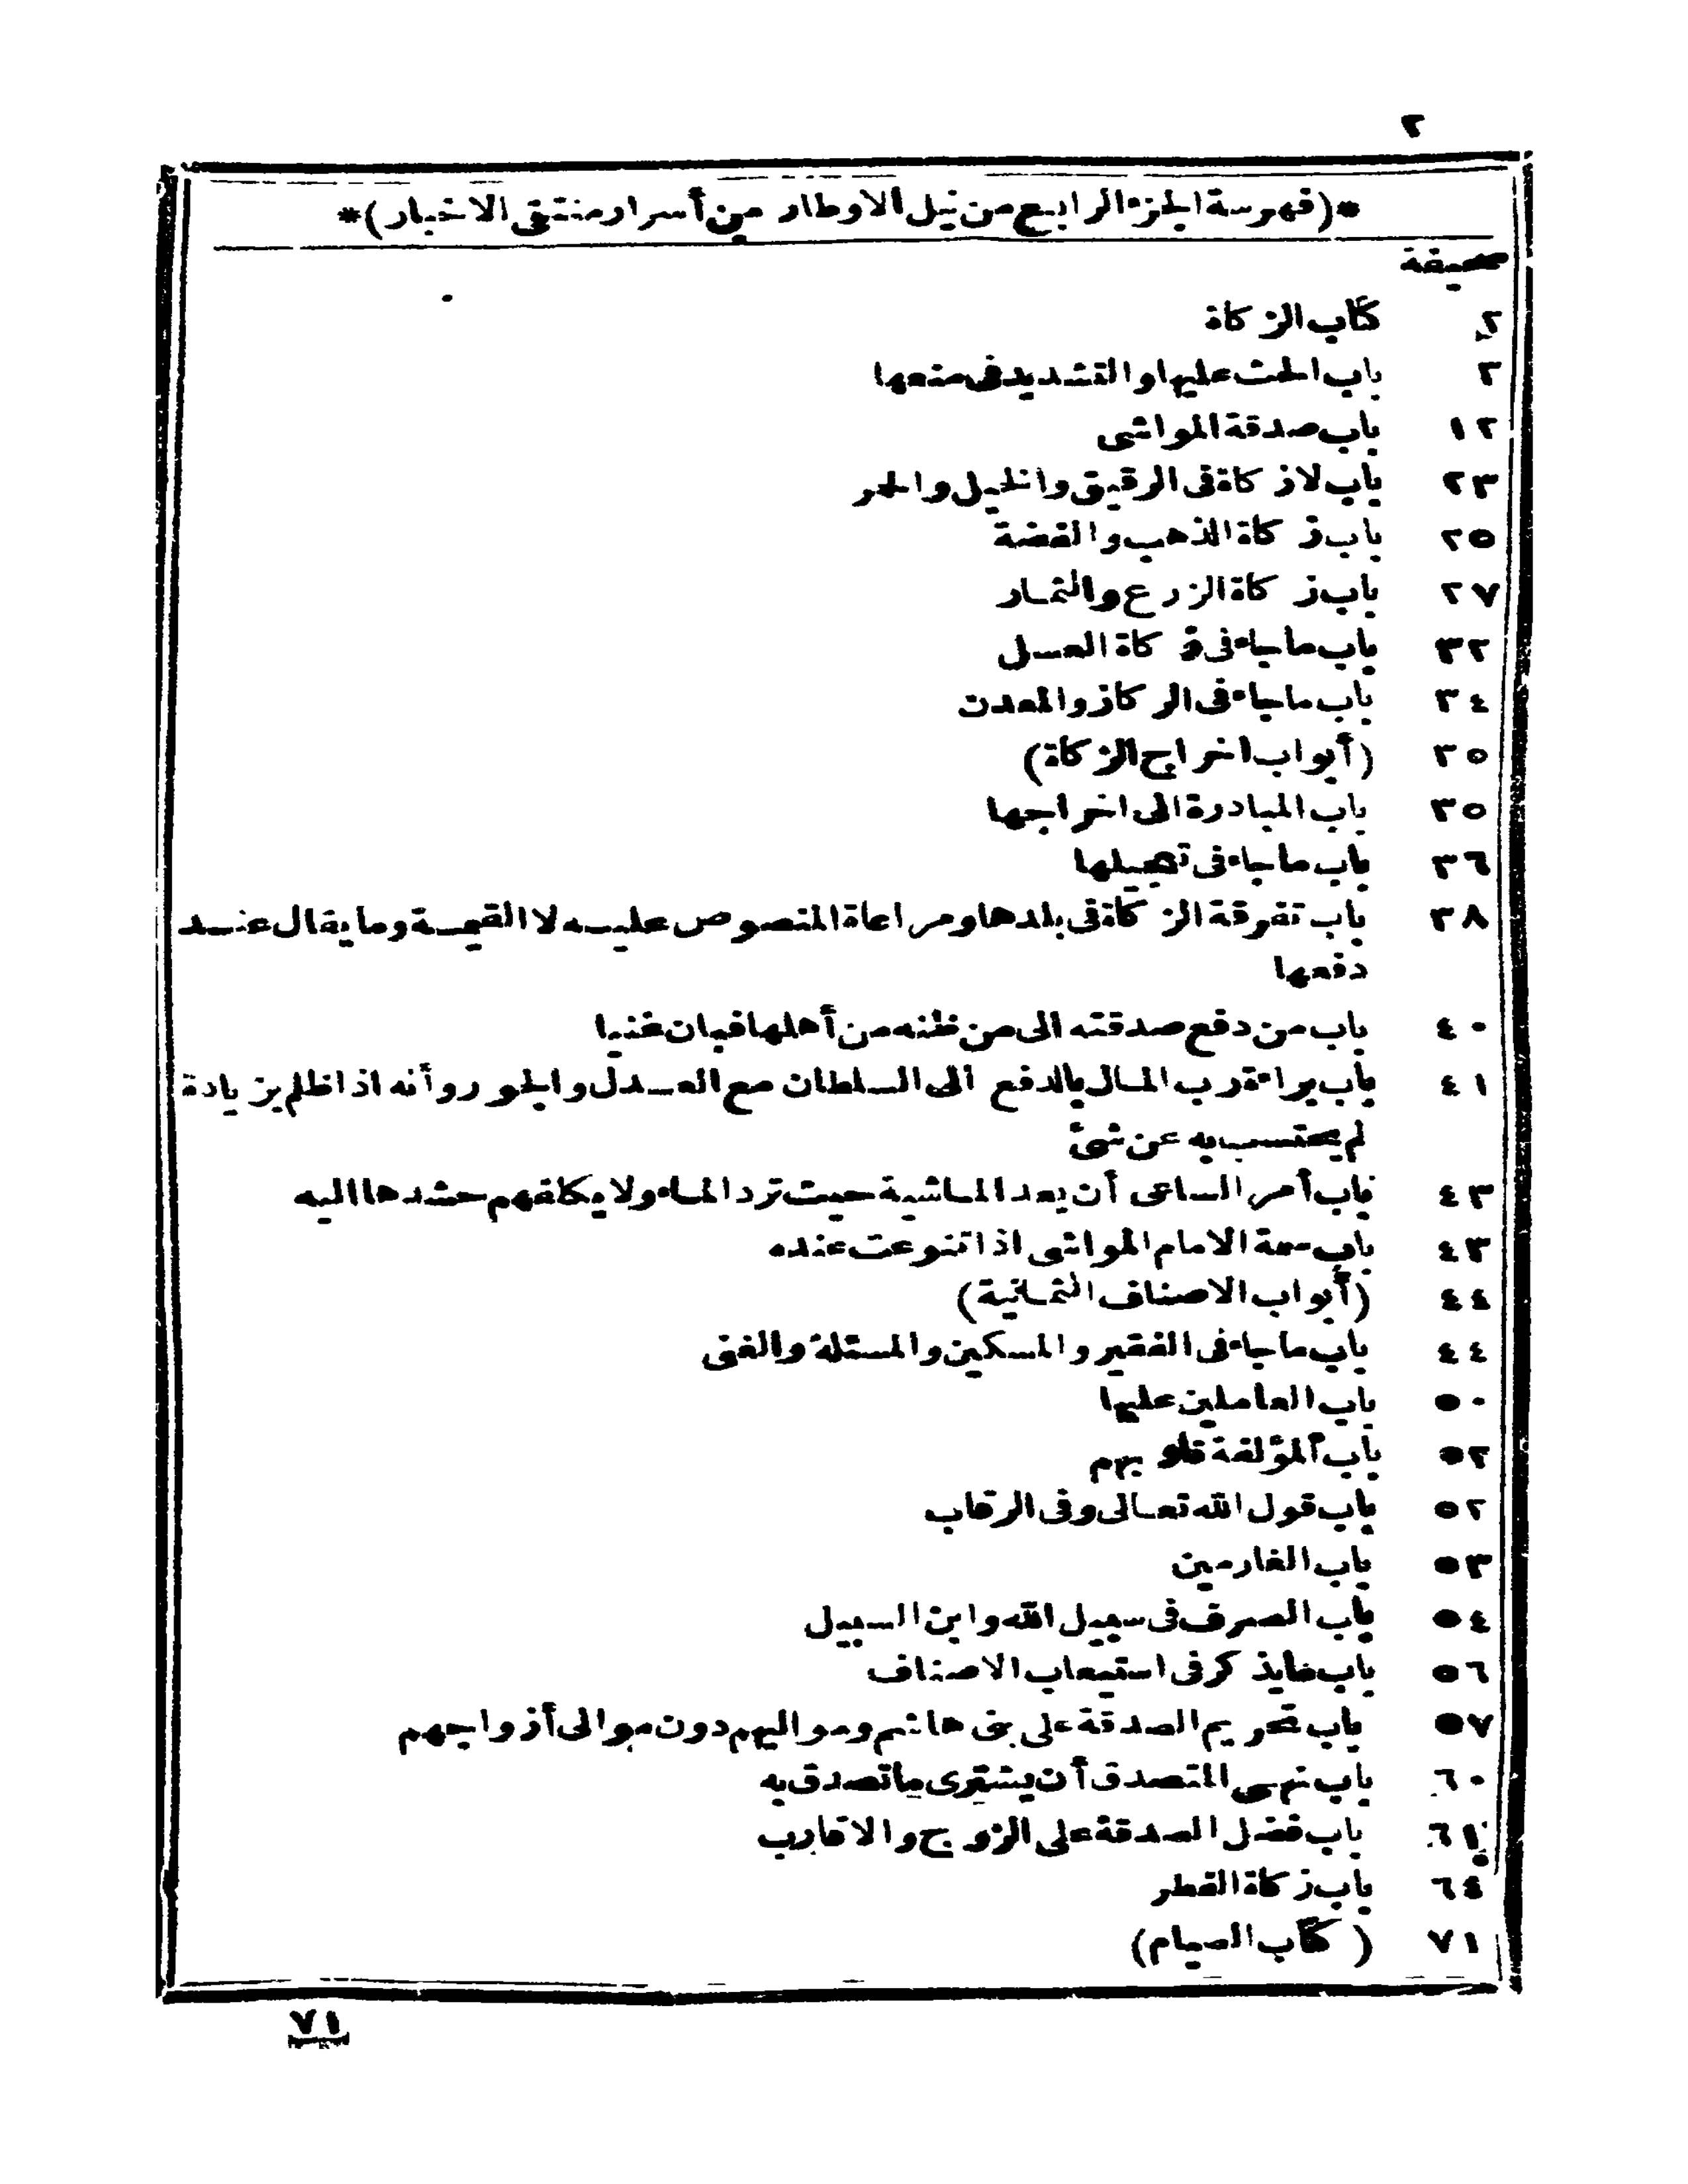 ٢
*(فهرسة الجزء الرابع من نيل الاوطار من أسرار منتقى الاخبار)*
صحيفة
٢ كتاب الزكاة
٢ باب الحث عليها والتشديد فى منعها
١٢ باب صدقة المواشى
٢٣ باب لا زكاة فى الرقيق والخيل والحمر
٢٥ باب زكاة الذهب والفضة
٢٧ باب زكاة الزرع والثمار
٣٢ باب ما جاء فى زكاة العسل
٣٤ باب ما جاء فى الركاز والمعدن
٣٥ (أبواب اخراج الزكاة)
٣٥ باب المبادرة الى اخراجها
٣٦ باب ما جاء فى تعجيلها
٣٨ باب تفرقة الزكاة فى بلدها ومراعاة المنصوص عليه لا القيمة وما يقال عند
دفعها
٤٠ باب من دفع صدقته الى من ظنه من أهلها فبان غنيا
٤١ باب براءة رب المال بالدفع الى السلطان مع العدل والجور وأنه اذا ظلم بزيادة
لم يحتسب به عن شئ
٤٣ باب أمر الساعى أن يعد الماشية حيث ترد الماء ولا يكلفهم حشدها اليه
٤٣ باب سمة الامام المواشى اذا تنوعت عنده
٤٤ (أبواب الاصناف الثمانية)
٤٤ باب ما جاء فى الفقير والمسكين والمسئلة والغنى
٥٠ باب العاملين عليها
٥٢ باب المؤلفة قلوبهم
٥٢ باب قول الله تعالى وفى الرقاب
٥٣ باب الغارمين
٥٤ باب الصرف فى سبيل الله وابن السبيل
٥٦ باب مايذكر فى استيعاب الاصناف
٥٧ باب تحريم الصدقة على بنى هاشم ومواليهم دون موالى أزواجهم
٦٠ باب نهى المتصدق أن يشترى ما تصدق به
٦١ باب فضل الصدقة على الزوج والاقارب
٦٤ باب زكاة الفطر
٧١ (كتاب الصيام)
٧١